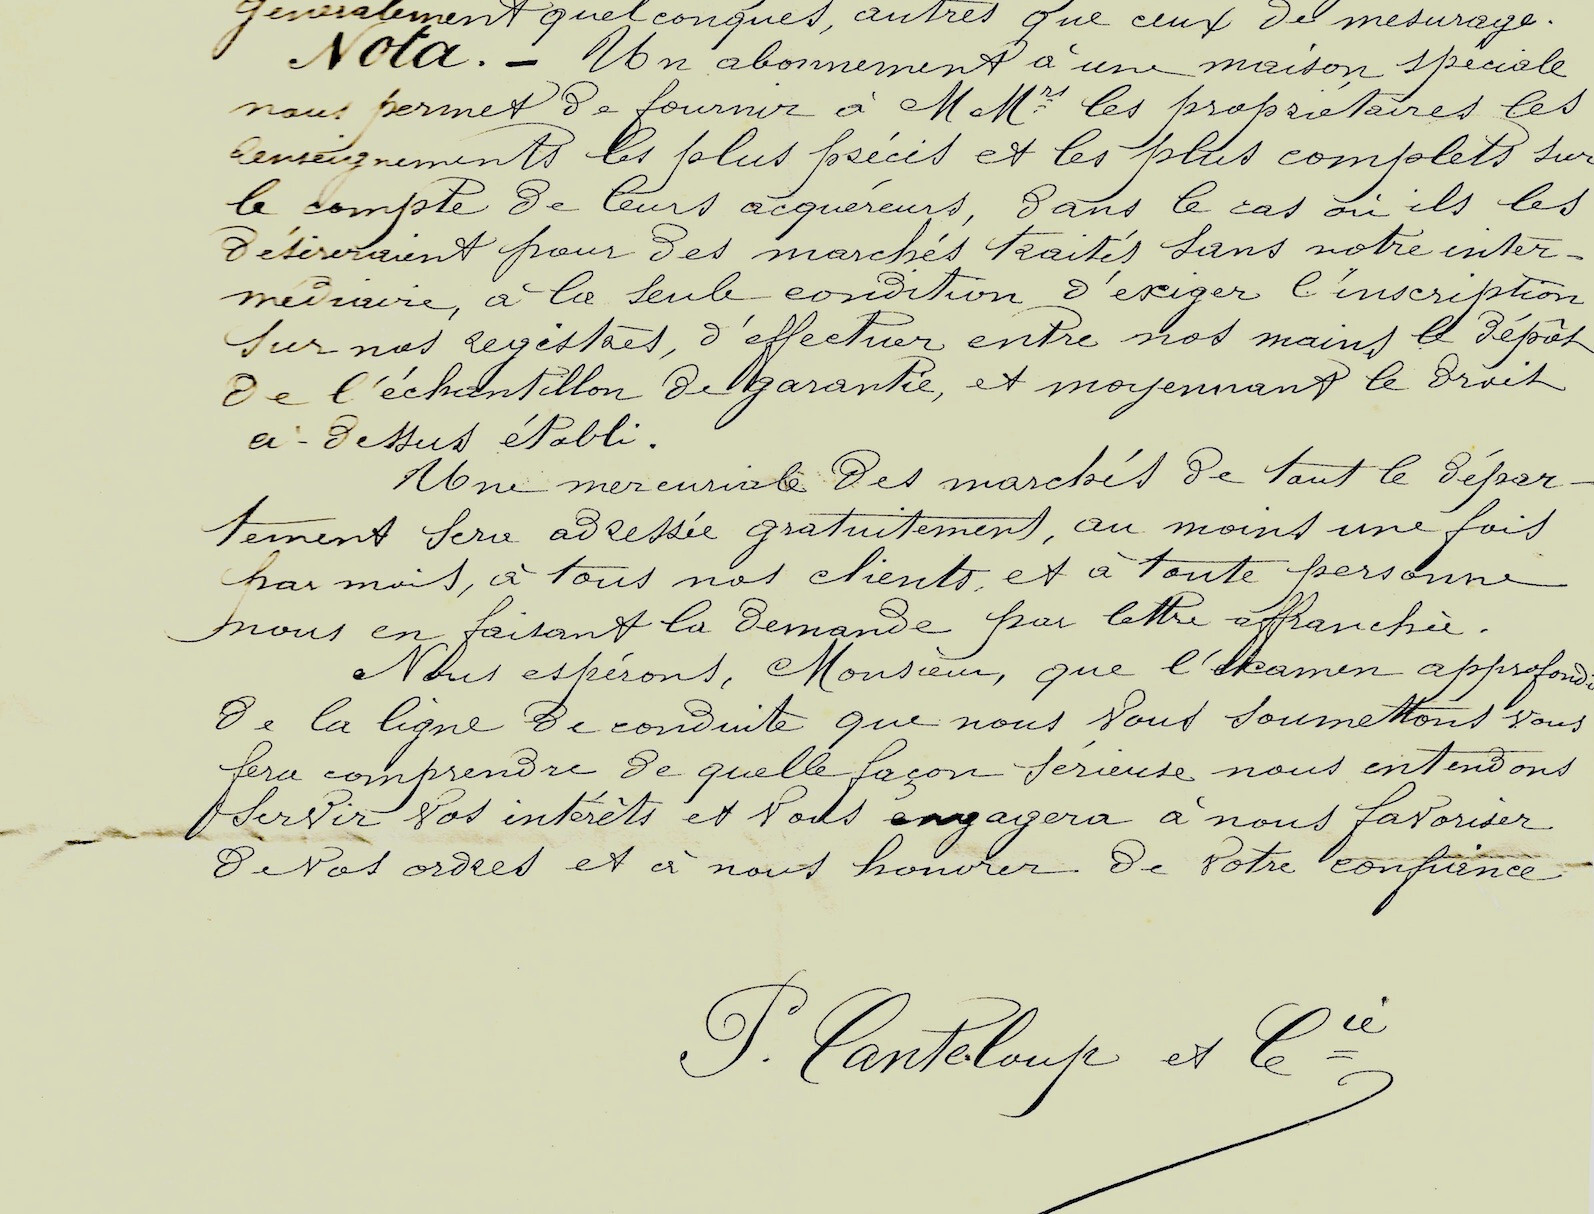 généralement quelconques, autres que ceux de mesurage.
Nota. – Un abonnement à une maison spéciale
nous permet de fournir à MMrs les propriétaires les
renseignements les plus précis et les plus complets sur
le compte de leurs acquéreurs, dans le cas où ils les
désireraient pour des marchés traités sans notre inter-
médiaire, à la seule condition d'exiger l'inscription
sur nos registres, d'effectuer entre nos mains le dépôt
de l'échantillon de garantie, et moyennant le droit
ci-dessus établi.
Une mercuriale des marchés de tout le dépar-
tement sera adressée gratuitement, au moins une fois
par mois, à tous nos clients, et à toute personne
nous en faisant la demande par lettre affranchie.
Nous espérons, Monsieur, que l'examen approfondi
de la ligne de conduite que nous vous soumettons vous
fera comprendre de quelle façon sérieuse nous entendons
servir vos intérêts et vous engagera à nous favoriser
de vos ordres et à nous honorer de votre confiance
P. Canteloup et Cie